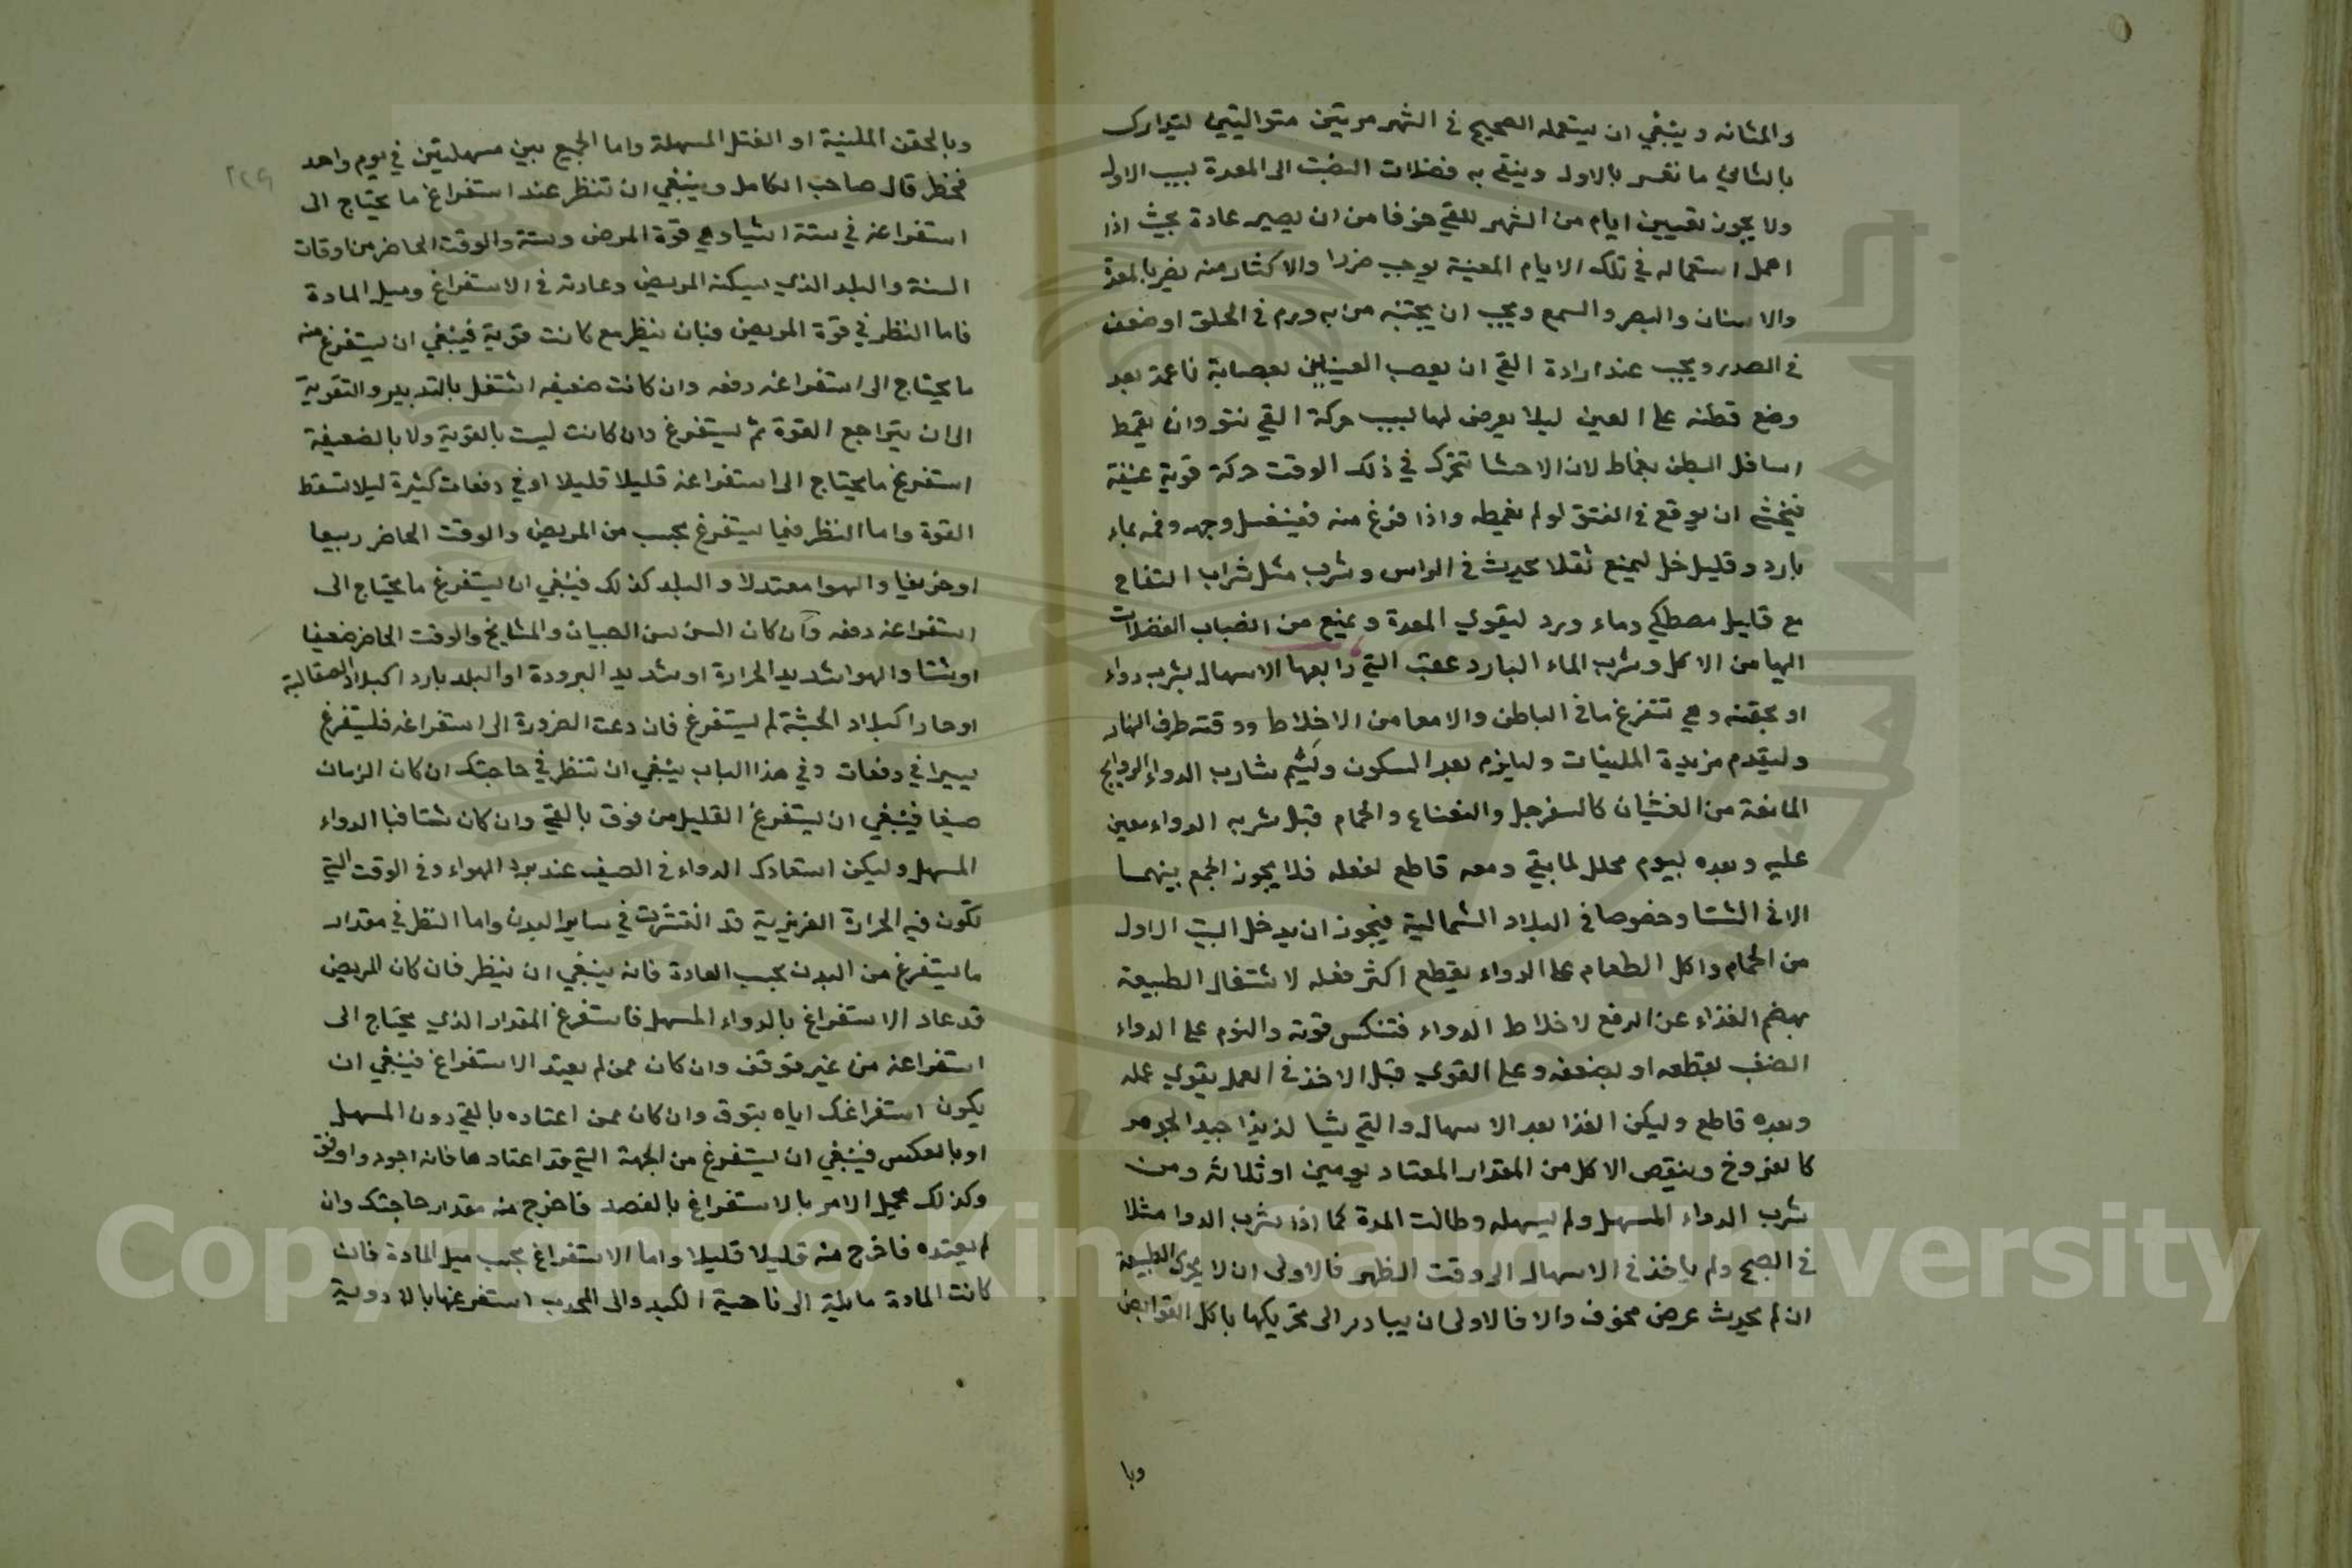 والمثانه وينبغي ان يستعمله الصحيح في الشهر مرتين متواليتين ليتدارك
بالثاني ما تعسر بالاول وينقي به فضلات انصبت الى المعدة بسبب الاول
ولا يجوز تعيين ايام من الشهر للقي خوفا من ان يصير عادة بحيث اذا
اهمل استعماله في تلك الايام المعينة يوجب ضررا والاكثار منه يضر بالمعدة
والاسنان والبصر والسمع ويجب ان يجتنبه من به ورم في الحلق او ضعف
في الصدر ويجب عند ارادة القي ان يعصب العينين بعصابة ناعمة بعد
وضع قطنه على العين ليلا يعرض لها بسبب حركة القي نتو وان يقمط
اسافل البطن بقماط لان الاحشا تتحرك في ذلك الوقت حركة قوية عنيفة
فيخشى ان يوقع في الفتق لو لم يقمطه واذا فرغ منه فيغسل وجهه وفمه بماء
بارد وقليل خل ليمنع ثقلا يحدث في الراس وشرب مثل شراب التفاح
مع قليل مصطكي وماء ورد ليقوي المعدة ويمنع من انصباب الفضلات
اليها من الاكل وشرب الماء البارد عقب القي رابعها الاسهال بشرب دواء
او بحقنه وهي تتفرغ ما في الباطن والامعا من الاخلاط ووقته طرف النهار
وليقدم مزيدة الملينات وليلزم بعد السكون وليشم شارب الدواء الروايح
المانعة من الغثيان كالسفرجل والنعناع والحمام قبل شربه الدواء معين
عليه وبعده بيوم محلل لما بقي ومعه قاطع لفعله فلا يجوز الجمع بينهما
الا في الشتا وخصوصا في البلاد الشمالية فيجوز ان يدخل البيت الاول
من الحمام واكل الطعام على الدواء يقطع اكثر فعله لاشتغال الطبيعة
بهضم الغذاء عن الدفع لاخلاط الدواء فتنكس قوته والنوم على الدواء
الضعف يقطعه او يضعفه وعلى القوي قبل الاخذ في العمل يقوي عمله
وبعده قاطع وليكن الغذا بعد الاسهال والقي شيا لذيذا جيد الجوهر
كالفروخ وينقص الاكل من المقدار المعتاد يومين او ثلاثه ومن
شرب الدواء المسهل ولم يسهله وطالت المدة كما اذا شرب الدوا مثلا
في الصبح ولم ياخذ في الاسهال الى وقت الظهر فالاولى ان لا يحرك الطبيعة
ان لم يحدث عرض مخوف والا فالاولى ان يبادر الى تحريكها باكل القوابض
وبا
٢٢٩
وبالحقن الملينة او الفتل المسهلة واما الجمع بين مسهلين في يوم واحد
فخطر قال صاحب الكامل وينبغي ان تنظر عند استفراغ ما يحتاج الى
استفراغه في ستة اشيا وهي قوة المرض وسنه والوقت الحاضر من اوقات
السنة والبلد الذي يسكنه المريض وعادته في الاستفراغ وميل المادة
فاما النظر في قوة المريض فبان ينظر مع كانت قوية فينبغي ان يستفرغ منه
ما يحتاج الى استفراغه دفعه وان كانت ضعيفه اشتغل بالتدبير والتقوية
الى ان يتراجع القوة ثم يستفرغ وان كانت ليست بالقوية ولا بالضعيفة
استفرغ ما يحتاج الى استفراغه قليلا قليلا او في دفعات كثيرة ليلا تسقط
القوة واما النظر فيما يستفرغ بحسب من المريض والوقت الحاضر ربيعا
او خريفيا والهوا معتدلا والبلد كذلك فينبغي ان يستفرغ ما يحتاج الى
استفراغه دفعه وان كان السن سن الصبيان والمشايخ والوقت الحاضر ضعيفا
او شتا والهوا شديد الحرارة او شديد البرودة او البلد باردا كبلاد الصقالبة
او حارا كبلاد الحبشة لم يستفرغ فان دعت الضرورة الى استفراغه فليستفرغ
يسيرا في دفعات وفي هذا الباب ينبغي ان تنظر في حاجتك ان كان الزمان
صيفا فينبغي ان يستفرغ القليل من فوق بالقي وان كان شتا فبا الدواء
المسهل وليكن استعمالك الدواء في الصيف عند برد الهواء وفي الوقت التي
تكون فيه الحرارة الغريزية قد انتشرت في ساير البدن واما النظر في مقدار
ما يستفرغ من البدن بحسب العادة فانه ينبغي ان ينظر فان كان المريض
قد عاد الاستفراغ بالدواء المسهل فاستفرغ المقدار الذي يحتاج الى
استفراغه من غير توقف وان كان ممن لم يعتد الاستفراغ فينبغي ان
يكون استفراغك اياه بتوق وان كان ممن اعتاده بالقي دون المسهل
او بالعكس فينبغي ان يستفرغ من الجهة التي قد اعتادها فانه اجود واوفق
وكذلك يجيل الامر بالاستفراغ بالفصد فاخرج منه مقدار حاجتك وان
لم يعتده فاخرج منه قليلا قليلا واما الاستفراغ بحسب ميل المادة فان
كانت المادة مايلة الى ناحية الكبد والى المحدب استفرغتها بالادوية
Copyright © King Saud University